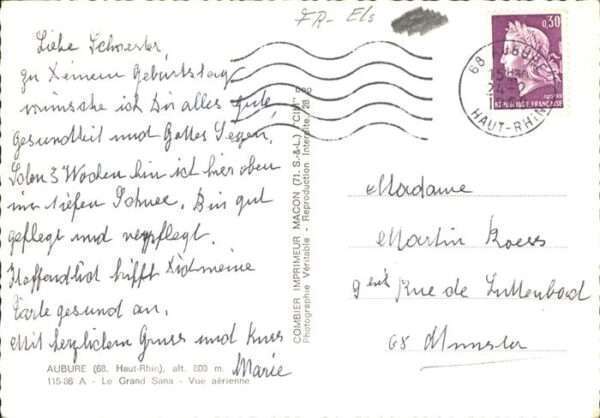 FR- Els
Liebe Schwester,
zu Deinem Geburtstag
wünsche ich Dir alles gute
Gesundheit und Gottes Segen.
Schon 3 Wochen bin ich hier oben
im tiefen Schnee. Bin gut
gepflegt und verpflegt.
Hoffendlich trifft Dich meine
Karte gesund an.
Mit herzlichem Gruss und Kuss
Marie
AUBURE (68. Haut-Rhin), alt. 800 m.
115-88 A - Le Grand Sana - Vue aérienne
COMBIER IMPRIMEUR MACON (71. S.-&-L.) "CIM"
Photographie Véritable - Reproduction Interdite
0,30
REPUBLIQUE FRANÇAISE
68 AUBURE
15H
24-2
HAUT-RHIN
Madame
Martin
9 Rue de Luttenbach
68 Munster